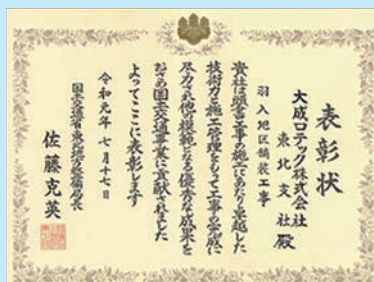 表彰状
大成ロテック株式会社
東北支社殿
羽入地区舗装工事
貴社は頭書工事の施工にあたり卓越した
技術力と施工管理をもって工事を完成に
尽力され他の模範となる優秀な成果を
おさめ国土交通事業に貢献されました
よってここに表彰します
令和元年七月十七日
国土交通省東北地方整備局長
佐藤克英